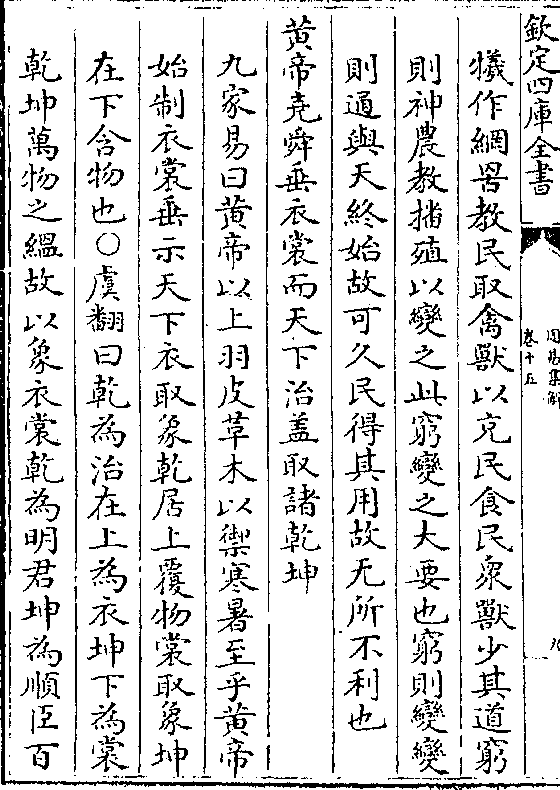 欽定四庫全書
周易集解
卷十五
犧作網罟教民取禽獸以充民食民衆獸少其道窮
則神農教播殖以變之此窮變之大要也窮則變變
則通與天終始故可久民得其用故无所不利也
黄帝堯舜垂衣裳而天下治蓋取諸乾坤
九家易曰黄帝以上羽皮草木以禦寒暑至乎黄帝
始制衣裳垂示天下衣取象乾居上覆物裳取象坤
在下含物也○虞翻曰乾為治在上為衣坤下為裳
乾坤萬物之緼故以象衣裳乾為明君坤為順臣百